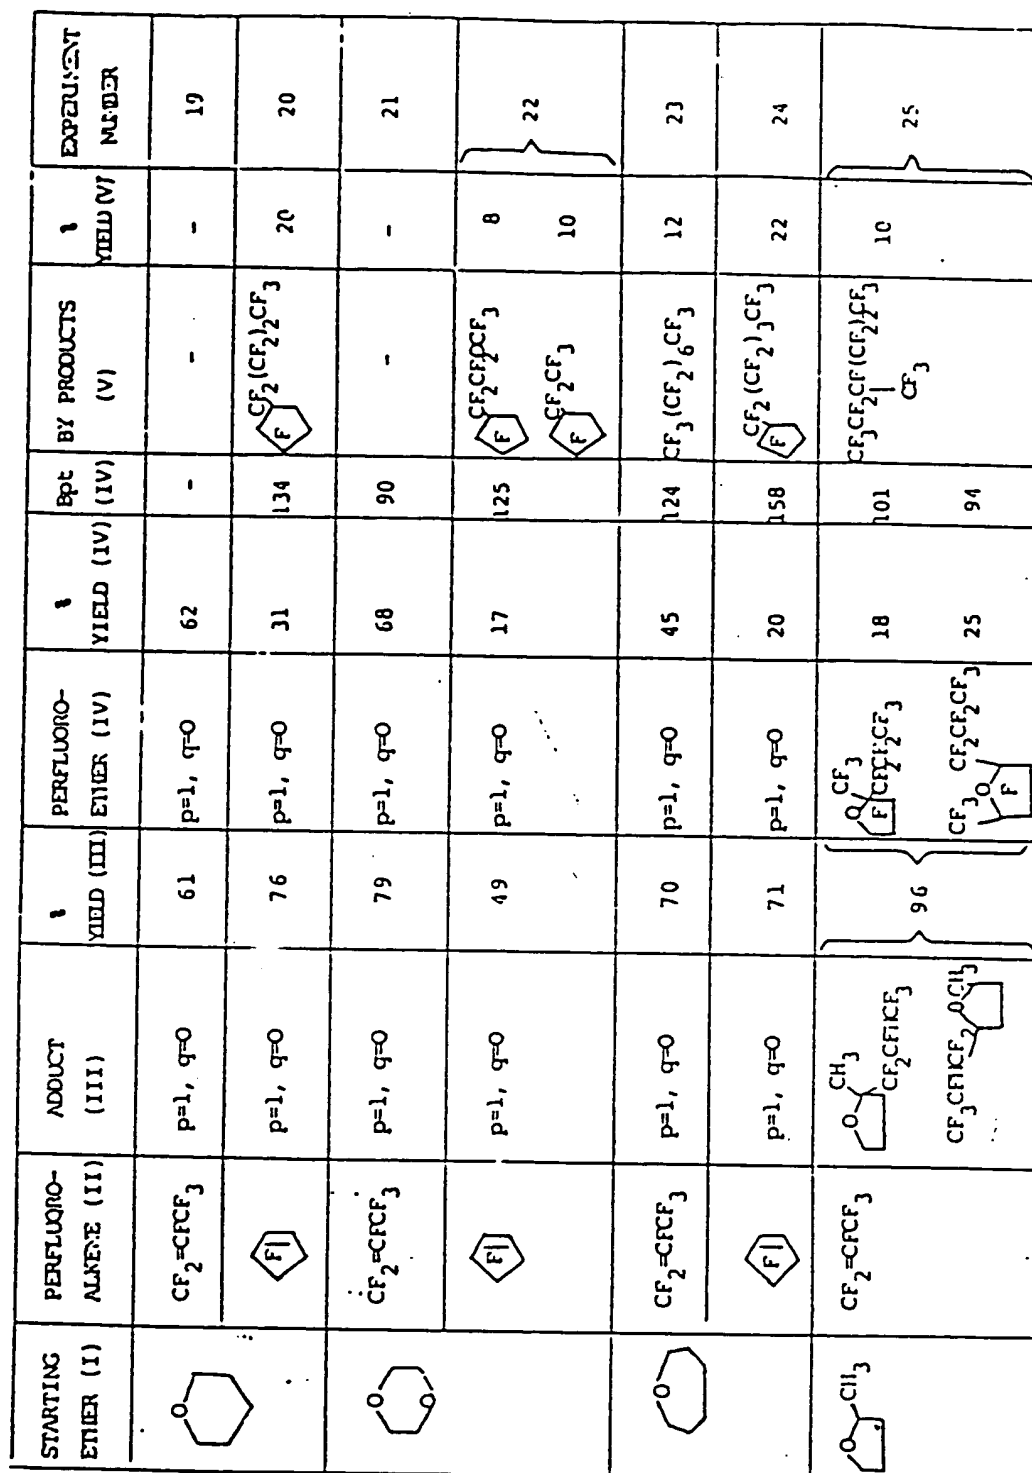 STARTING ETHER (I) | PERFLUORO-ALKENE (II) | ADDUCT (III) | % YIELD (III) | PERFLUORO-ETHER (IV) | % YIELD (IV) | Bpt (IV) | BY PRODUCTS (V) | % YIELD (V) | EXPERIMENT NUMBER
O | CF2=CFCF3 | p=1, q=O | 61 | p=1, q=O | 62 | - | - | - | 19
F | p=1, q=O | 76 | p=1, q=O | 31 | 134 | F CF2(CF2)2CF3 | 20 | 20
O O | CF2=CFCF3 | p=1, q=O | 79 | p=1, q=O | 68 | 90 | - | - | 21
F | p=1, q=O | 49 | p=1, q=O | 17 | 125 | F CF2CF2OCF3 | 8 | 22
F CF2CF3 | 10
O | CF2=CFCF3 | p=1, q=O | 70 | p=1, q=O | 45 | 124 | CF3(CF2)6CF3 | 12 | 23
F | p=1, q=O | 71 | p=1, q=O | 20 | 158 | F CF2(CF2)3CF3 | 22 | 24
O CH3 | CF2=CFCF3 | O CH3 CF2CFHCF3 | 96 | O CF3 F CF2CF2CF3 | 18 | 101 | CF3CF2CF2CF(CF2)2CF3 CF3 | 10 | 25
CF3CFHCF2 O CH3 | CF3 O F CF2CF2CF3 | 25 | 94